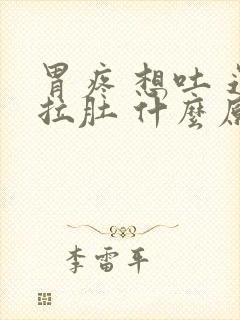 胃疼 想吐
拉肚 什麼
李雷平